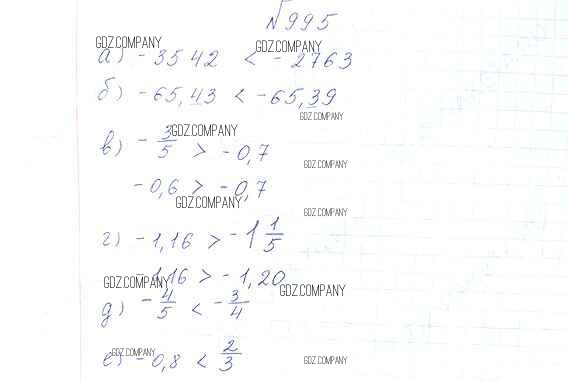 №995
GDZ.COMPANY GDZ.COMPANY
а) - 3542 < - 2763
б) - 65,43 < - 65,39
GDZ.COMPANY
GDZ.COMPANY
в) - 3/5 > - 0,7
GDZ.COMPANY
- 0,6 > - 0,7
GDZ.COMPANY
GDZ.COMPANY
г) - 1,16 > - 1 1/5
- 1,16 > - 1,20
GDZ.COMPANY GDZ.COMPANY
д) - 4/5 < - 3/4
GDZ.COMPANY GDZ.COMPANY
е) - 0,8 < 2/3